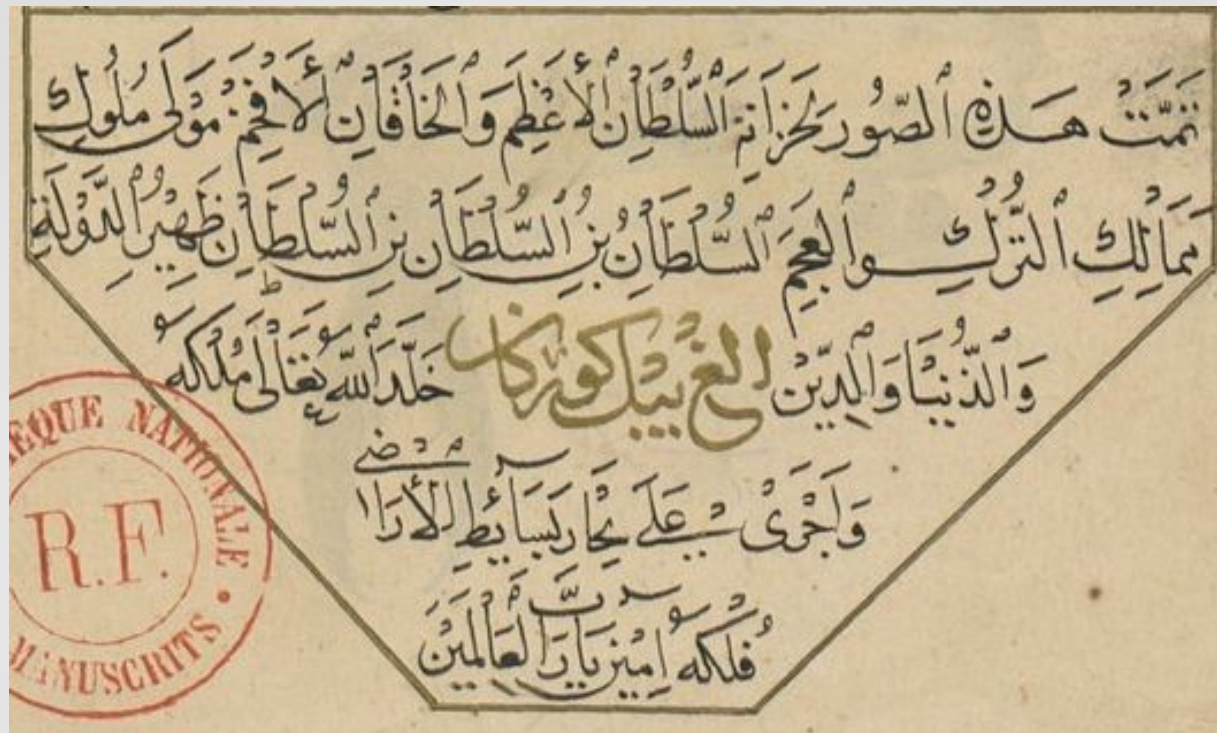 تمت هذه الصور لخزانة السلطان الأعظم والخاقان الأفخم مولى ملوك
ممالك الترك والعجم السلطان بن السلطان بن السلطان ظهير الدولة
والدنيا والدين الغ بيك كورگان خلد الله تعالى ملكه
وأجرى في على بحار بسائط الأراضي
فلكه آمين يا رب العالمين
BIBLIOTHEQUE NATIONALE
R.F.
MANUSCRITS